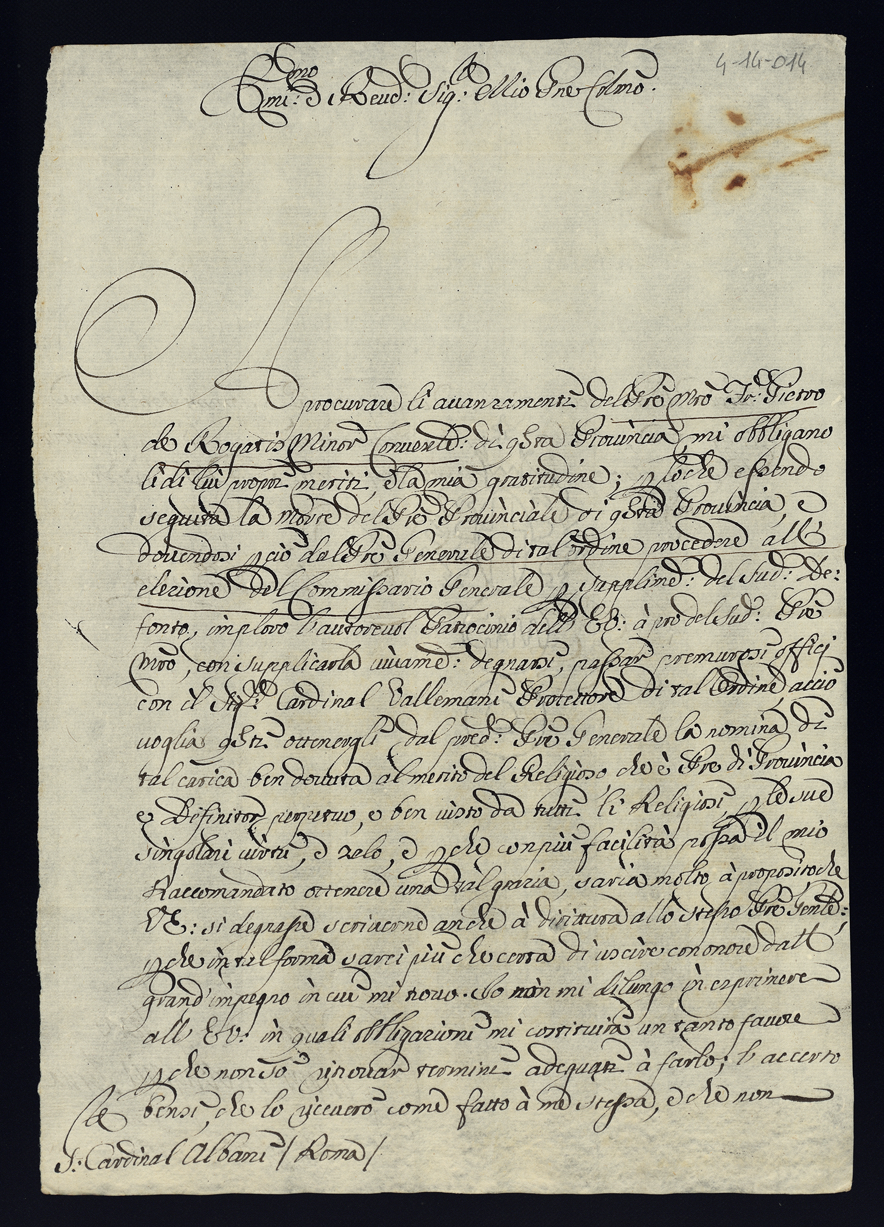 4-14-014
Emi:mo e Reud: Sig:re Mio Pne Colmo.
A procurare li auanzamenti del Pre Mro Fr: Pietro
de Rogatis Minor Conuentl: di qsta Prouincia mi obbligano
li di lui proprj meriti, e la mia gratitudine; p lo che essendo
seguita la morte del Pre Prouinciale di qsta Prouincia, e
douendosi p ciò dal Pre Generale di tal'ordine procedere all'
elezione del Commissario Generale p supplimto: del sudo: De:
fonto, imploro l'autoreuol Patrocinio dell' EV: à pro del sudo: Pre
Mro, con supplicarla uiuame: degnarsi, passar premurosi officj
con il Sigre Cardinal Vallemani Protettore di tal Ordine, acciò
uoglia qsti ottenergli dal predo: Pre Generale la nomina di
tal carica ben douuta al merito del Religioso che è Pre di Prouincia
e Definitor perpetuo, e ben uisto da tutti li Religiosi p le sue
singolari uirtù, e zelo, e pche con più facilità possa il mio
Raccomandato ottenere una tal grazia, saria molto à proposito che
VE: si degnasse scriuerne anche à dirittura allo stesso Pre Genle:
pche in tal forma sarei più che certa di uscire con onore dall'
grand'impegno in cui mi trouo. Io non mi dilungo in esprimere
all' EV: in quali obbligazioni mi costituirà un tanto fauore
pche non sò rinouar termini adequati à farlo; l'accerto
bensi, che lo riceuerò come fatto à me stessa, e che non
Sre
S: Cardinal Albani / Roma /